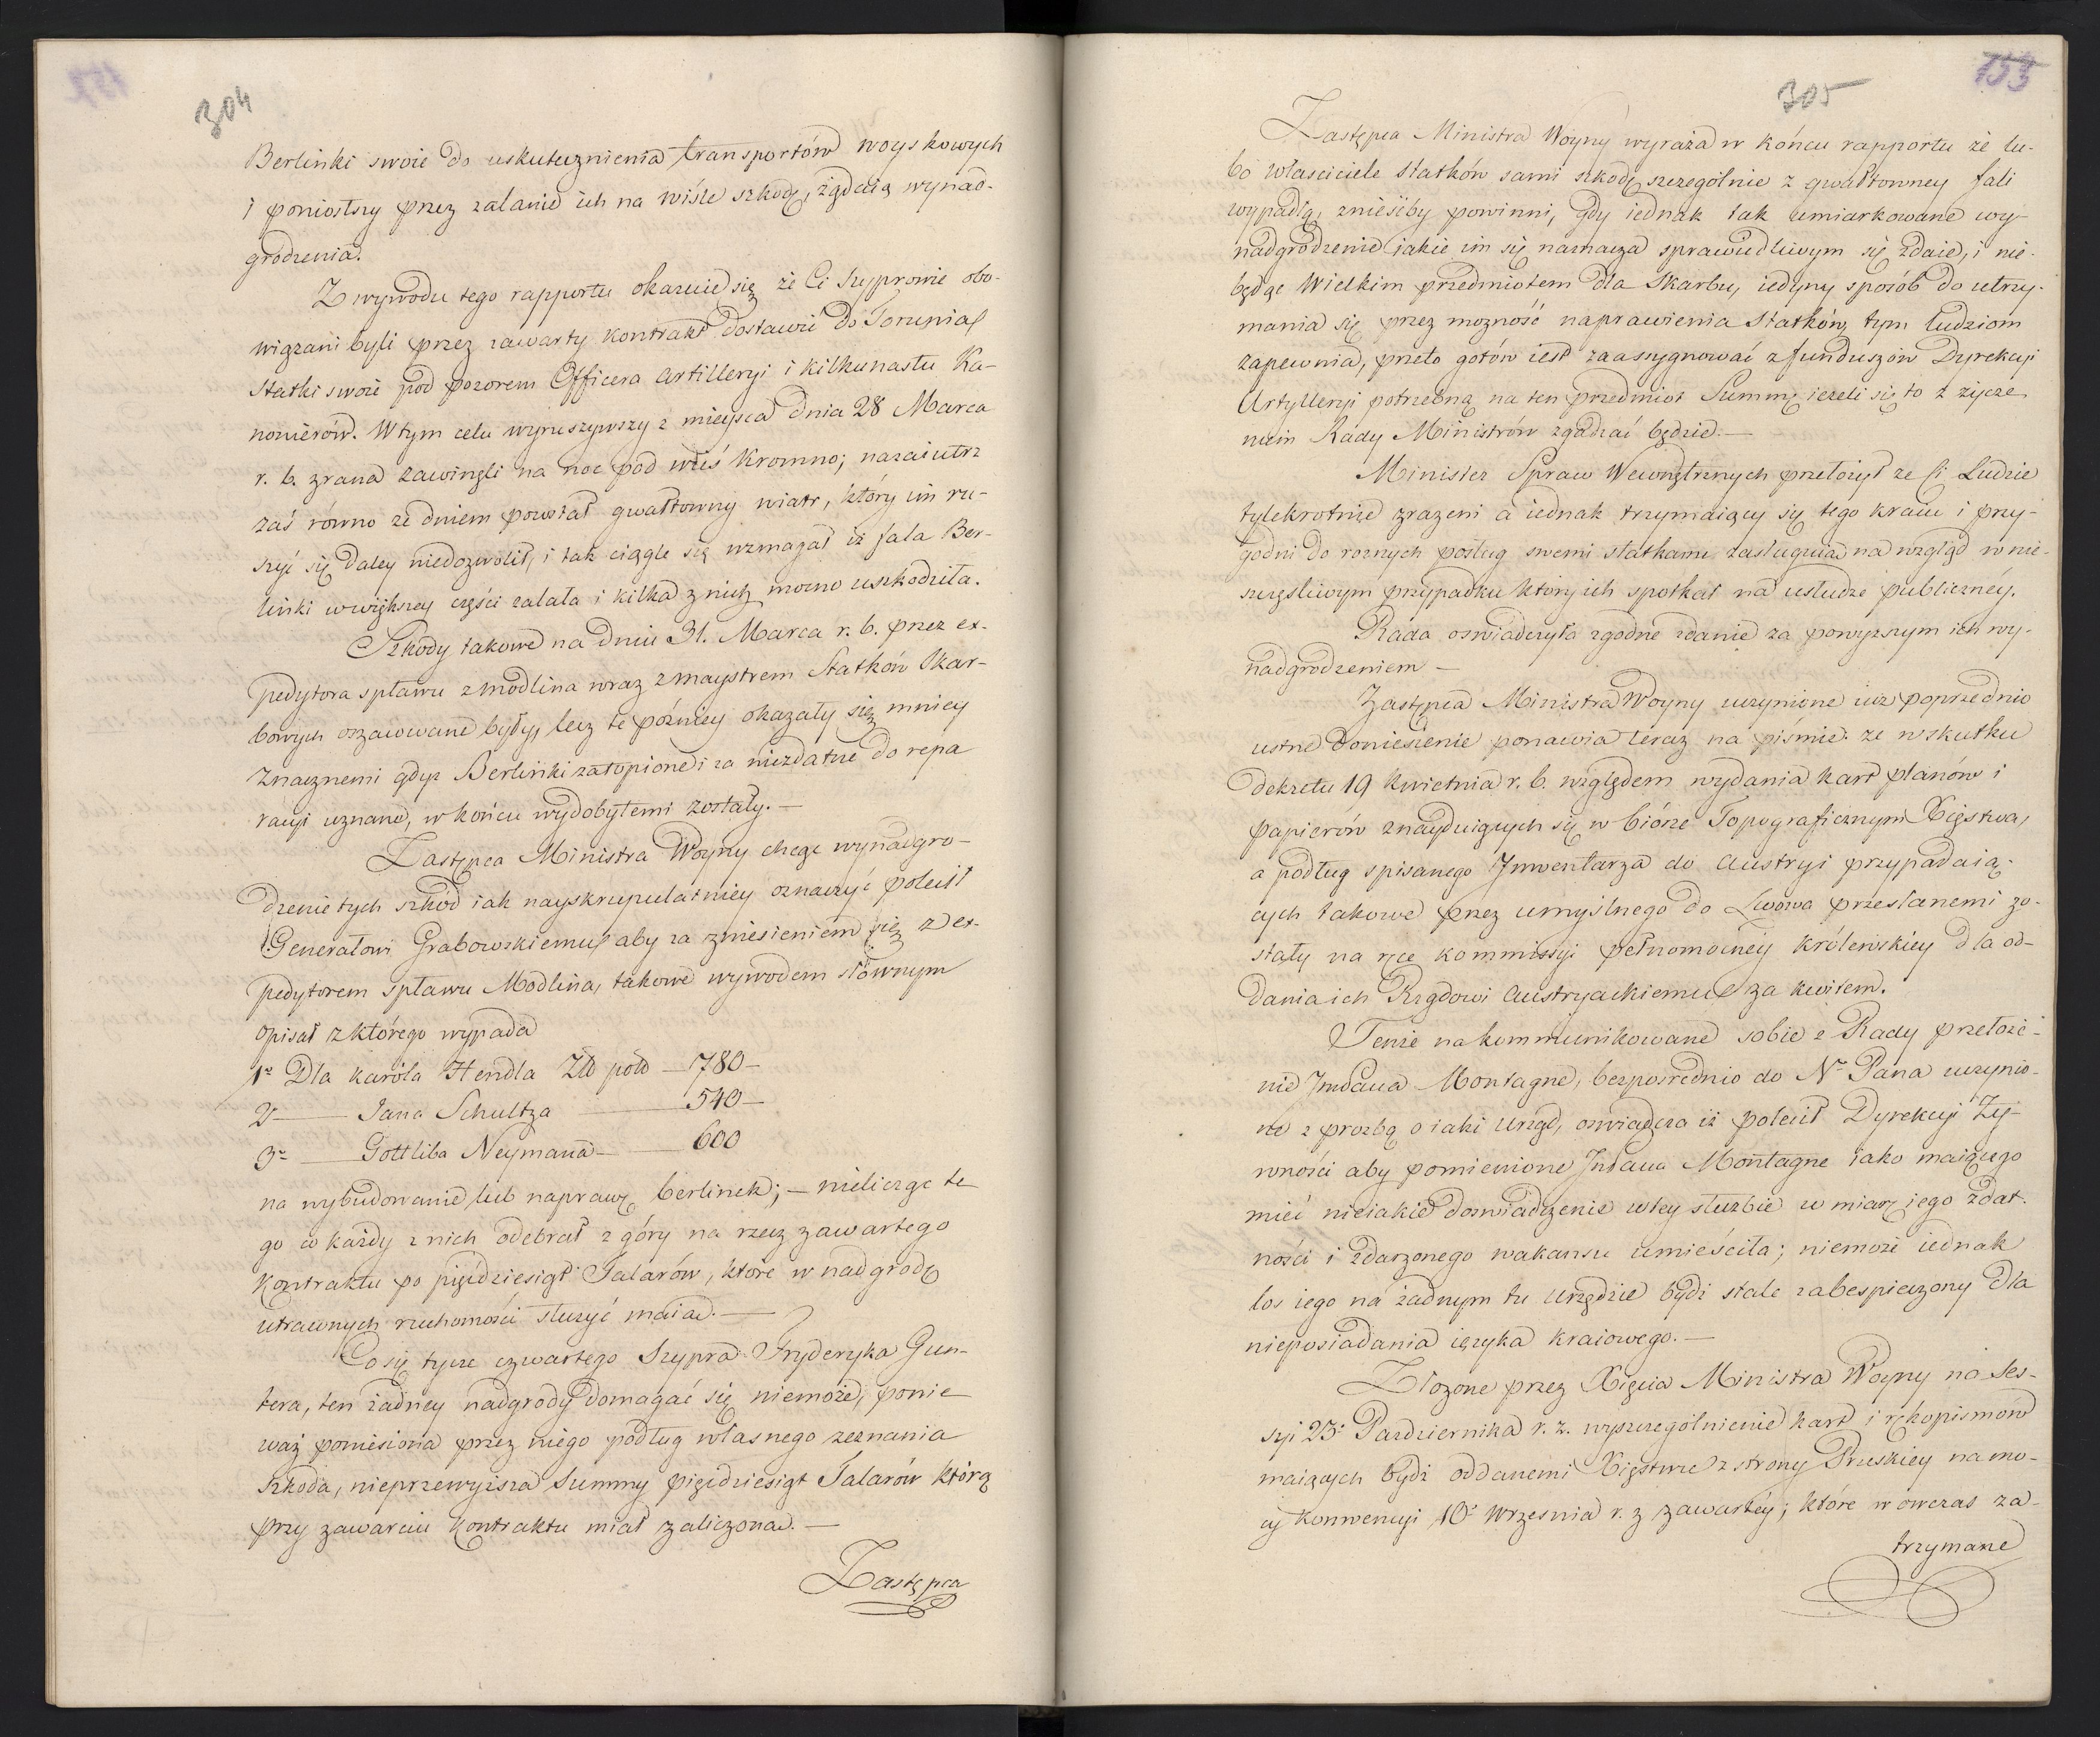 304
Berlinki swoie do uskutecznienia transportów woyskowych
i poniosłszy przez zalanie ich na wiśle szkodę, żądaią wynad-
grodzenia.
Z wywodu tego rapportu okazuie się że Ci Szyprowie obo-
wiązani byli przez zawarty kontrakt dostawić do Torunia
Statki swoie pod pozorem Officera Artilleryi i kilkunastu Ka-
nonierów. W tym celu wyruszywszy z mieysca dnia 28 Marca
r. b. zrana zawinęli na noc pod wieś Kromno; nazaiutrz
zaś równo ze dniem powstał gwałtowny wiatr, który im ru-
szyć się daley niedozwolił, i tak ciągle się wzmagał iż fala Ber-
linki w większey części zalała i kilka z nich mocno uszkodziła.
Szkody takowe na dniu 31. Marca r. b. przez ex-
pedytora spławu z Modlina wraz z maystrem Statków Skar-
bowych oszacowane były, lecz te późniey okazały się mniey
znacznemi gdyż Berlinki zatopione i za niezdatne do repa
racyi uznane, w końcu wydobytemi zostały. —
Zastępca Ministra Woyny chcąc wynadgro-
dzenie tych szkod iak nayskrupulatniey oznaczyć polecił
Generałowi Grabowskiemu aby za zniesieniem się z Ex-
pedytorem spławu Modlina, takowe wywodem słownym
opisał z którego wypada
1o Dla Karóla Hendla Złł pols — 780 —
2o — Jana Schultza — 540 —
3o — Gottliba Neymana — 600
na wybudowanie lub naprawę berlinek; — nielicząc te
go co każdy z nich odebrał z góry na rzecz zawartego
kontraktu po pięćdziesiąt Talarów, które w nadgrodę
utraconych ruchomości służyć maią. —
Co się tycze czwartego Szypra Fryderyka Gun-
tera, ten żadney nadgrody domagać się niemoże, ponie
waż poniesiona przez niego podług własnego zeznania
szkoda, nieprzewyższa Summy pięćdziesiąt Talarów którą
przy zawarciu kontraktu miał zaliczoną. —
Zastępca
305
153
Zastępca Ministra Woyny wyraża w końcu rapportu że lu-
bo właściciele statków sami szkodę szczególnie z gwałtowney fali
wypadłą, znieśćby powinni, gdy iednak tak umiarkowane wy-
nadgrodzenie iakie im się naznacza sprawiedliwym się zdaie, i nie-
będąc Wielkim przedmiotem dla Skarbu, iedyny sposób do utrzy-
mania się przez możność naprawienia Statków, tym ludziom
zapewnia, przeto gotów iest zaassygnować z funduszów Dyrekcyi
Artylleryi potrzebną na ten przedmiot Summę ieżeli się to z życze
niem Rady Ministrów zgadzać będzie. —
Minister Spraw Wewnętrznych przełożył że Ci Ludzie
tylekrotnie zrażeni a iednak trzymaiący się tego kraiu i przy-
godni do rożnych posług swemi statkami zasługuią na wzgląd w nie-
szczęśliwym przypadku który ich spotkał na usłudze publiczney.
Rada oswiadczyła zgodne zdanie za powyższym ich wy-
nadgrodzeniem —
Zastępca Ministra Woyny uczynione iuż poprzednio
ustne doniesienie ponawia teraz na piśmie: że w skutku
dekretu 19 kwietnia r. b. względem wydania kart planów i
papierów znayduiących się w biórze Topograficznym Xięstwa,
a podług spisanego Inwentarza do Austryi przypadaią-
cych takowe przez umyślnego do Lwowa przesłanemi zo-
stały na ręce kommissyi pełnomocney królewskiey dla od-
dania ich Rządowi Austryackiemu za kwitem.
Tenże na kommunikowane sobie z Rady przełoże-
nie Imdaua Montagne, bezpośrednio do No Pana uczynio-
ne z prozbą o iaki urząd, oswiadcza iż polecił Dyrekcyi Ży-
wności aby pomienione Indaua Montagne iako maiącego
mieć nieiakie doswiadczenie w tey służbie w miarę iego zdat-
ności i zdarzonego wakansu umieściła; niemoże iednak
los iego na żadnym tu urzędzie bydź stale zabespieczony dla
nieposiadania ięzyka kraiowego. —
Złożone przez Xięcia Ministra Woyny na Ses-
syi 23o Pazdziernika r. z. wyszczególnienie kart i rękopismów
maiących bydź oddanemi Xięstwu z strony Pruskiey na mo-
cy Konwencyi 10o Września r. z zawartéy; które w owczas za-
trzymane